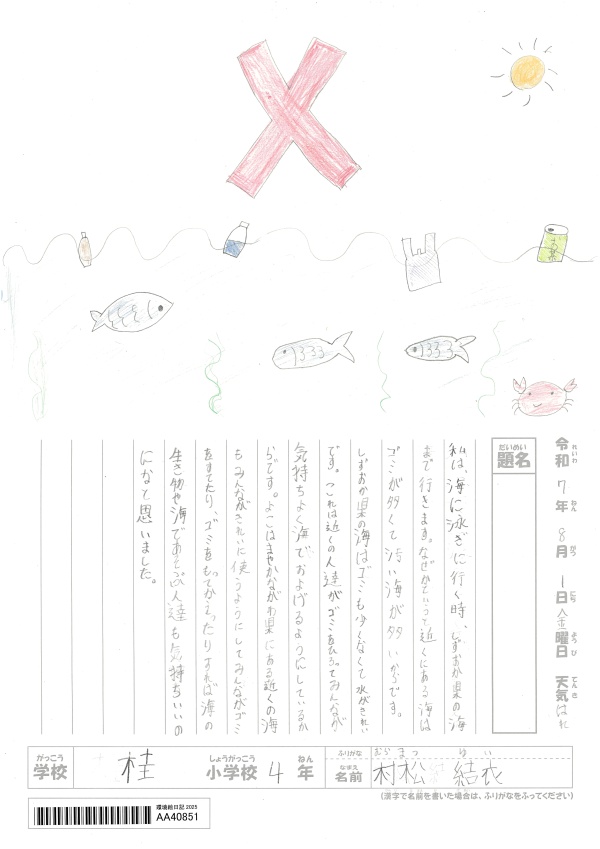 お茶
令和7年8月1日金曜日 天気はれ
れいわ ねん がつ にち ようび てんき
だいめい
題名
私は、海に泳ぎに行く時、しずおか県の海
まで行きます。なぜかというと近くにある海は
ゴミが多くて汚い海が多いからです。
しずおか県の海はゴミも少くなくて水がきれい
です。これは近くの人達がゴミをひろってみんなが
気持ちよく海でおよげるようにしているか
らです。よこはまやかながわ県にある近くの海
もみんながきれいに使うようにしてみんながゴミ
をすてたり、ゴミをもってかえったりすれば海の
生き物や海であそぶ人達も気持ちいいの
になと思いました。
がっこう
学校
桂
しょうがっこう
小学校
4
ねん
年
ふりがな
むらまつ ゆい
なまえ
名前
村松 結衣
(漢字で名前を書いた場合は、ふりがなをふってください)
環境絵日記 2025
AA40851